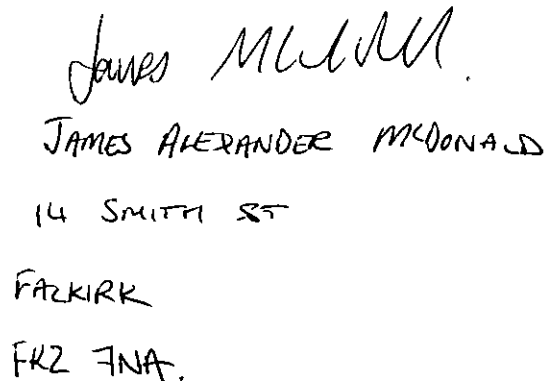 James
JAMES ALEXANDER MCDONALD
14 SMITH ST
FALKIRK
FK2 7NA.